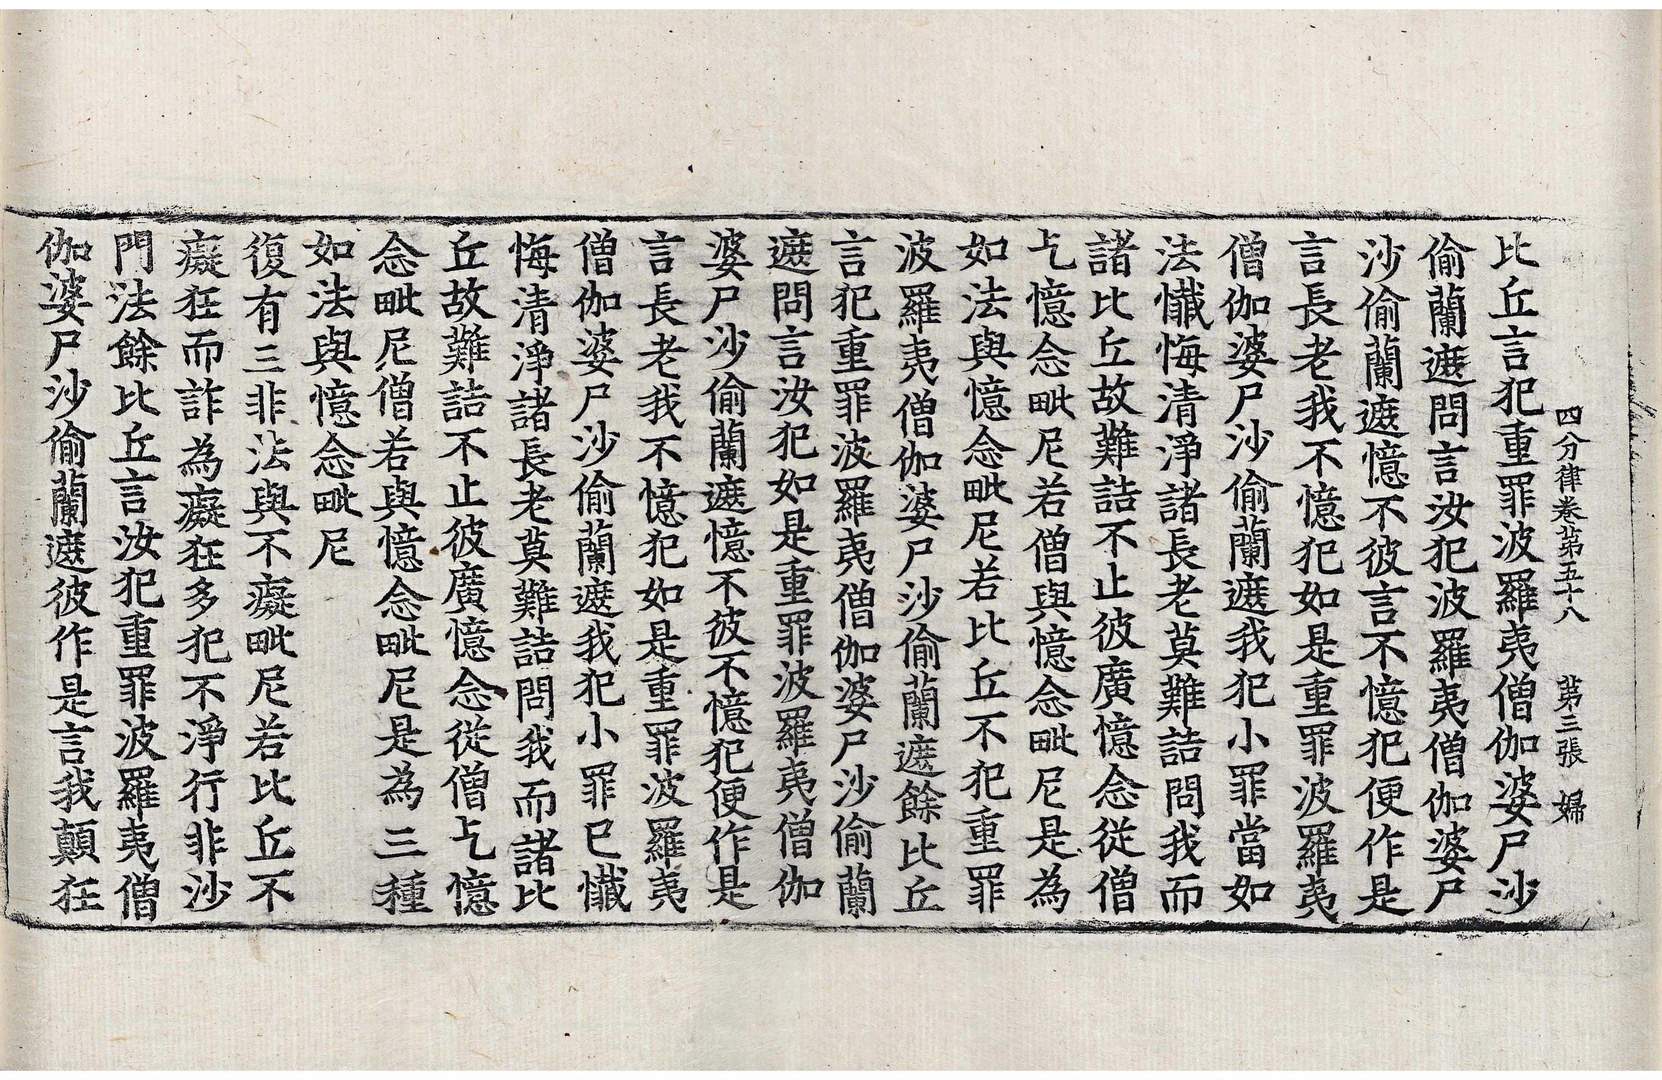 四分律卷苐五十八　苐三張　婦
比丘言犯重罪波羅夷僧伽婆尸沙
偷蘭遮問言汝犯波羅夷僧伽婆尸
沙偷蘭遮憶不彼言不憶犯便作是
言長老我不憶犯如是重罪波羅夷
僧伽婆尸沙偷蘭遮我犯小罪當如
法懺悔清淨諸長老莫難詰問我而
諸比丘故難詰不止彼廣憶念從僧
乞憶念毗尼若僧與憶念毗尼是為
如法與憶念毗尼若比丘不犯重罪
波羅夷僧伽婆尸沙偷蘭遮餘比丘
言犯重罪波羅夷僧伽婆尸沙偷蘭
遮問言汝犯如是重罪波羅夷僧伽
婆尸沙偷蘭遮憶不彼不憶犯便作是
言長老我不憶犯如是重罪波羅夷
僧伽婆尸沙偷蘭遮我犯小罪已懺
悔清淨諸長老莫難詰問我而諸比
丘故難詰不止彼廣憶念從僧乞憶
念毗尼僧若與憶念毗尼是為三種
如法與憶念毗尼
復有三非法與不癡毗尼若比丘不
癡狂而詐為癡狂多犯不淨行非沙
門法餘比丘言汝犯重罪波羅夷僧
伽婆尸沙偷蘭遮彼作是言我顛狂